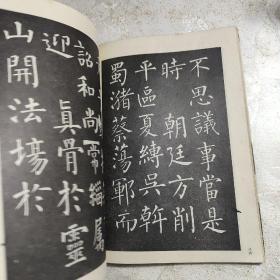 不思議事當是
時 朝廷方削
平區夏縛吳斡
蜀瀦蔡蕩鄆而
詔和尚率緇屬
迎 真骨於靈
山開法場於